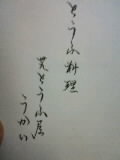 とうふ料理
芝とうふ屋
うかい